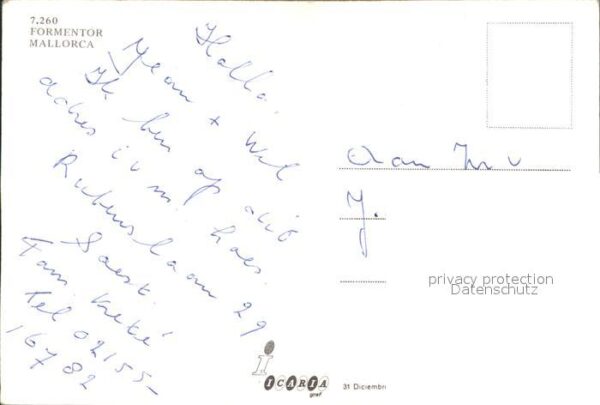 7,260
FORMENTOR
MALLORCA
Hallo,
Jean + Wil
Ik ben op dit
adres i.v.m. hees.
Rubenslaan 29
Soest.
Fam.
Tel 02155-
16782
Aan
J.
privacy protection
Datenschutz
ICARIA
graf
31 Diciembri